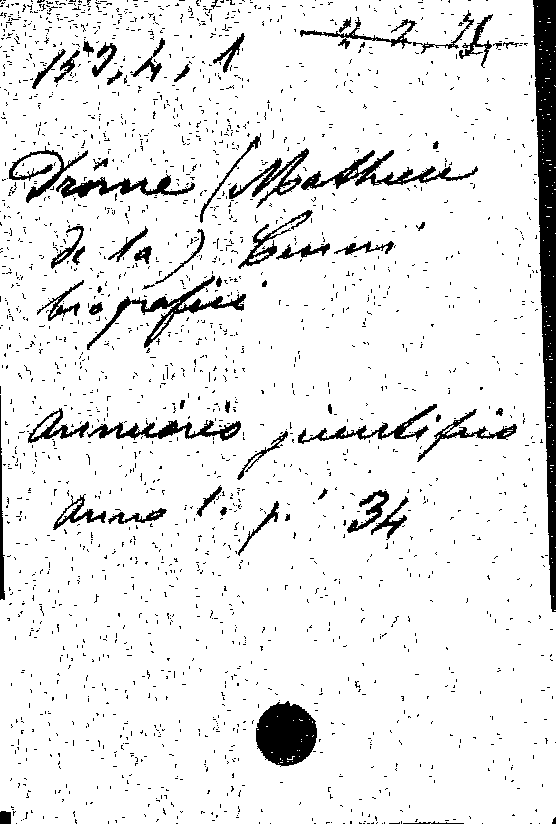 157,4,1 2.2.21.
Drôme (Mathieu
de la) Cenni
biografici
Annuario scientifico
Anno 1. p. 34